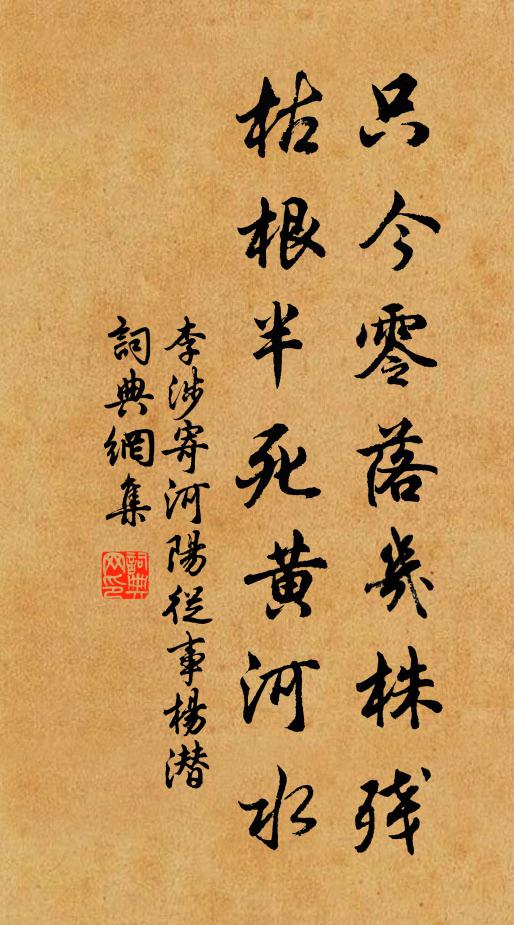 只今零落幾株残
枯根半死黄河水
李涉寄河陽從事楊潜
詞典網集
詞典網印